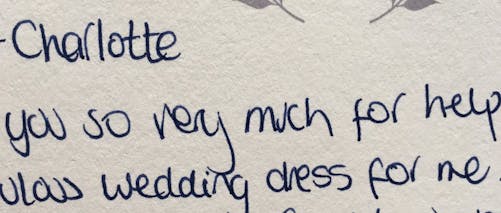 -Charlotte
you so very much for help
ulous wedding dress for me.